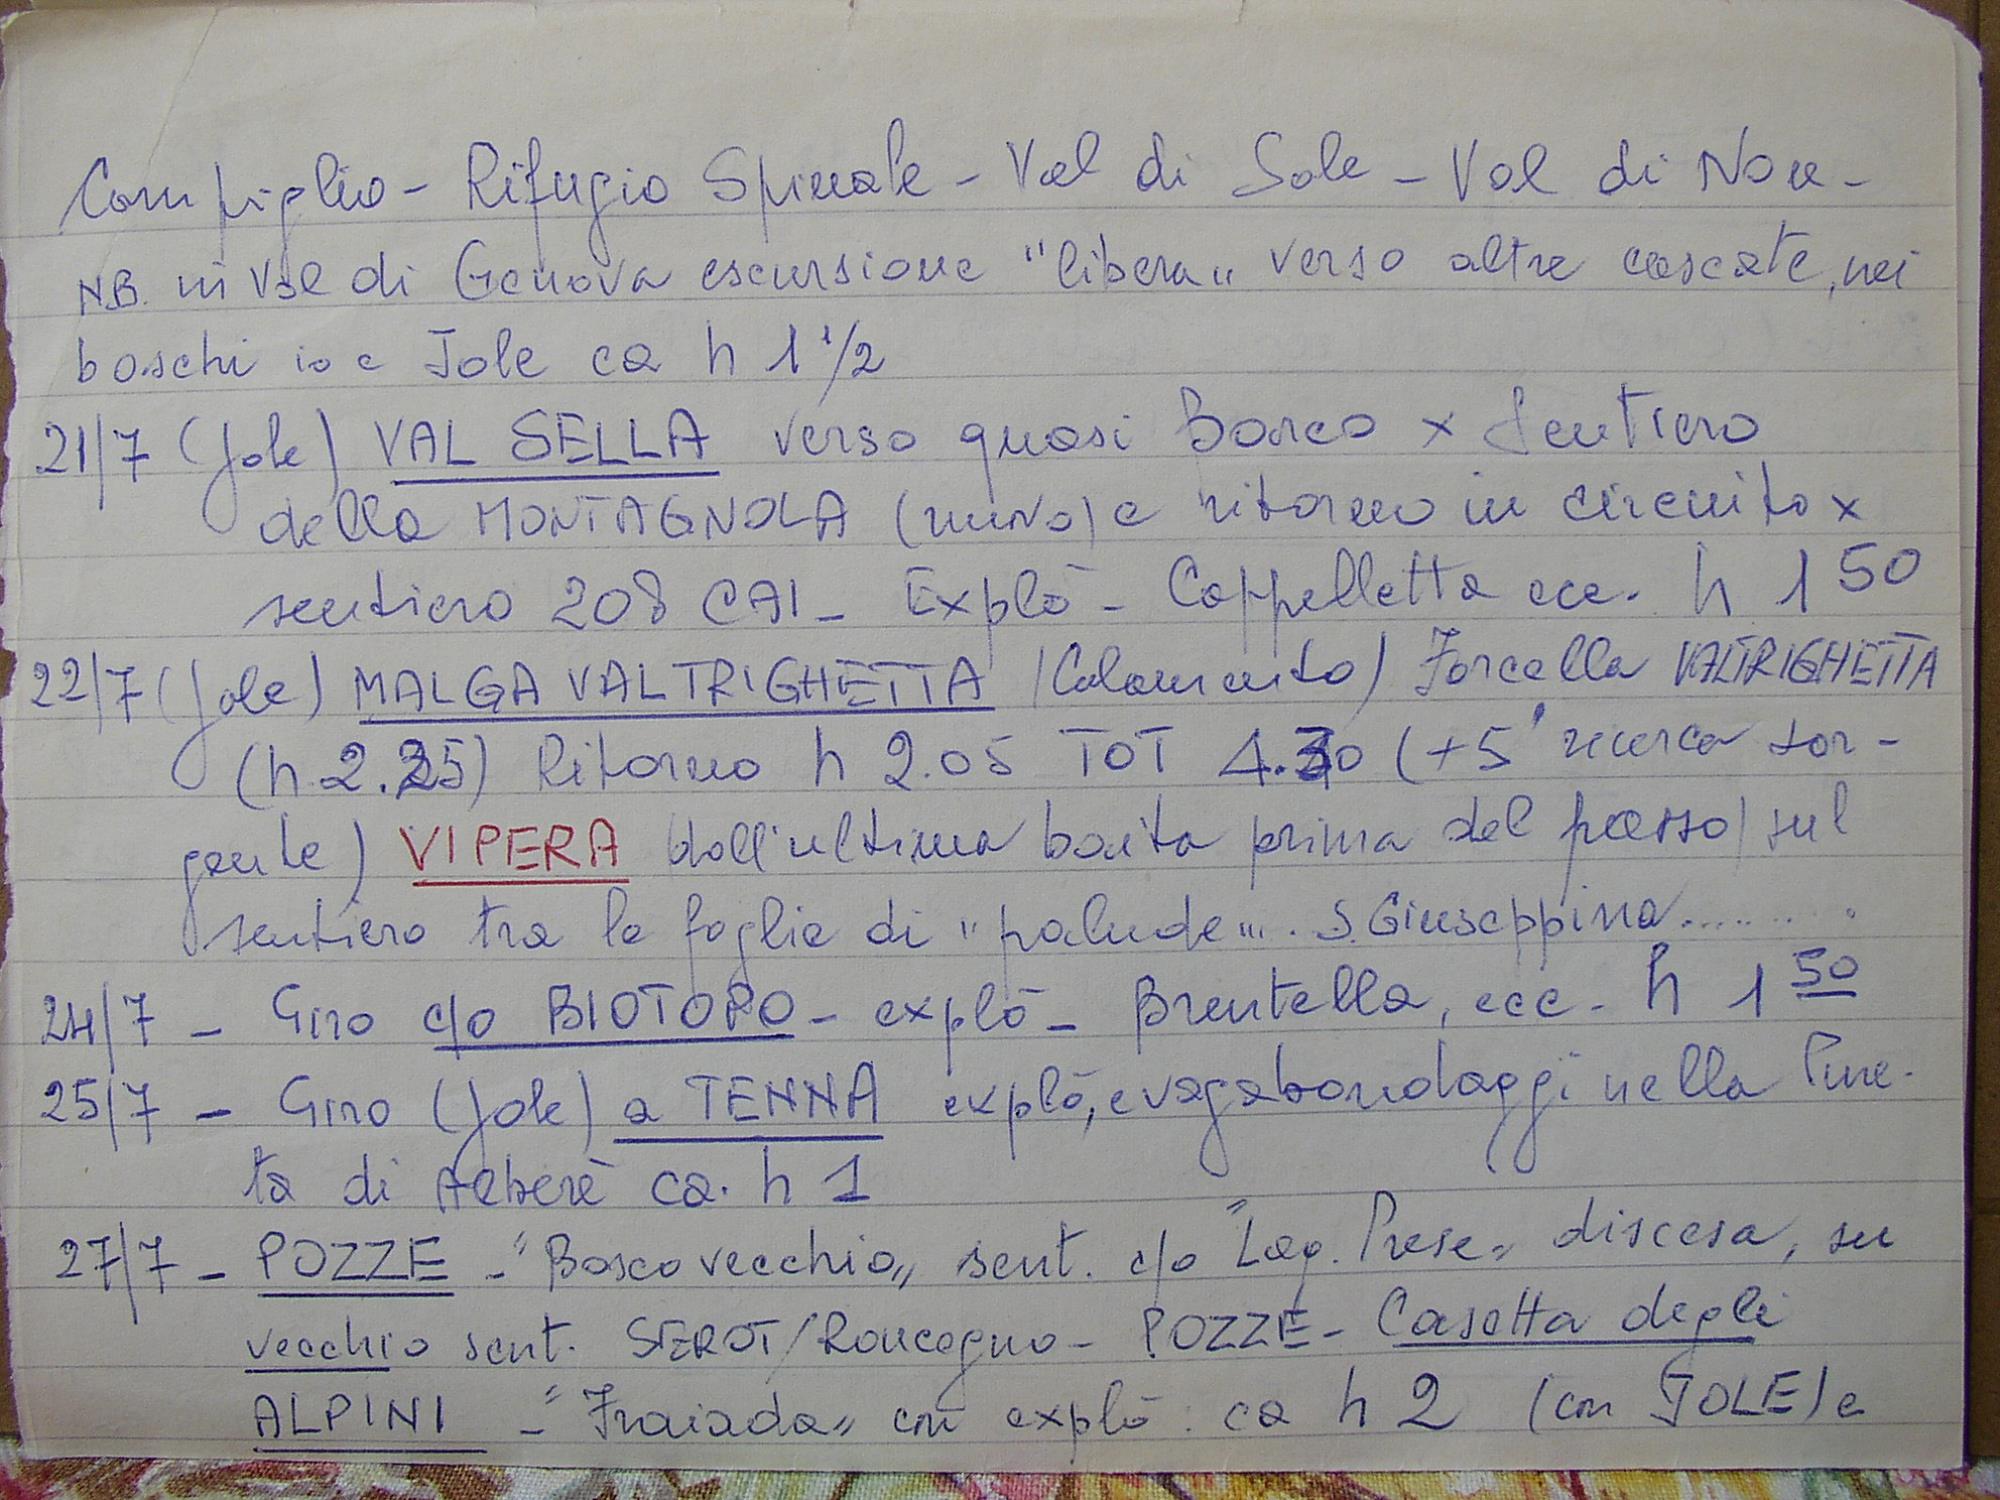 Campiglio - Rifugio Spinale - Val di Sole - Val di Non -
N.B. in Val di Genova escursione "libera" verso altre cascate, nei
boschi io e Jole ca h 1 1/2
21/7 (Jole) VAL SELLA verso quasi Barco x Sentiero
della MONTAGNOLA (nuovo) e ritorno in circuito x
sentiero 208 CAI - Explò - Cappelletta ecc. h 1 50
22/7 (Jole) MALGA VALTRIGHETTA (Calamento) Forcella VALTRIGHETTA
(h 2.25) Ritorno h 2.05 TOT 4.30 (+5' ricerca sor-
gente) VIPERA dall'ultima baita prima del passo/sul
sentiero tra le foglie di "palude"... S. Giuseppina........
24/7 - Giro c/o BIOTOPO - explò - Brentella, ecc. h 1 50
25/7 - Giro (Jole) a TENNA explò, e vagabondaggi nella Pine-
ta di Alberè ca. h 1
27/7 - POZZE - "Bosco vecchio" sent. c/o "Lag. Prese" discesa, su
vecchio sent. SEROT/Roncegno - POZZE - Casetta degli
ALPINI - "Fraiada" con explò: ca h 2 (con JOLE) e